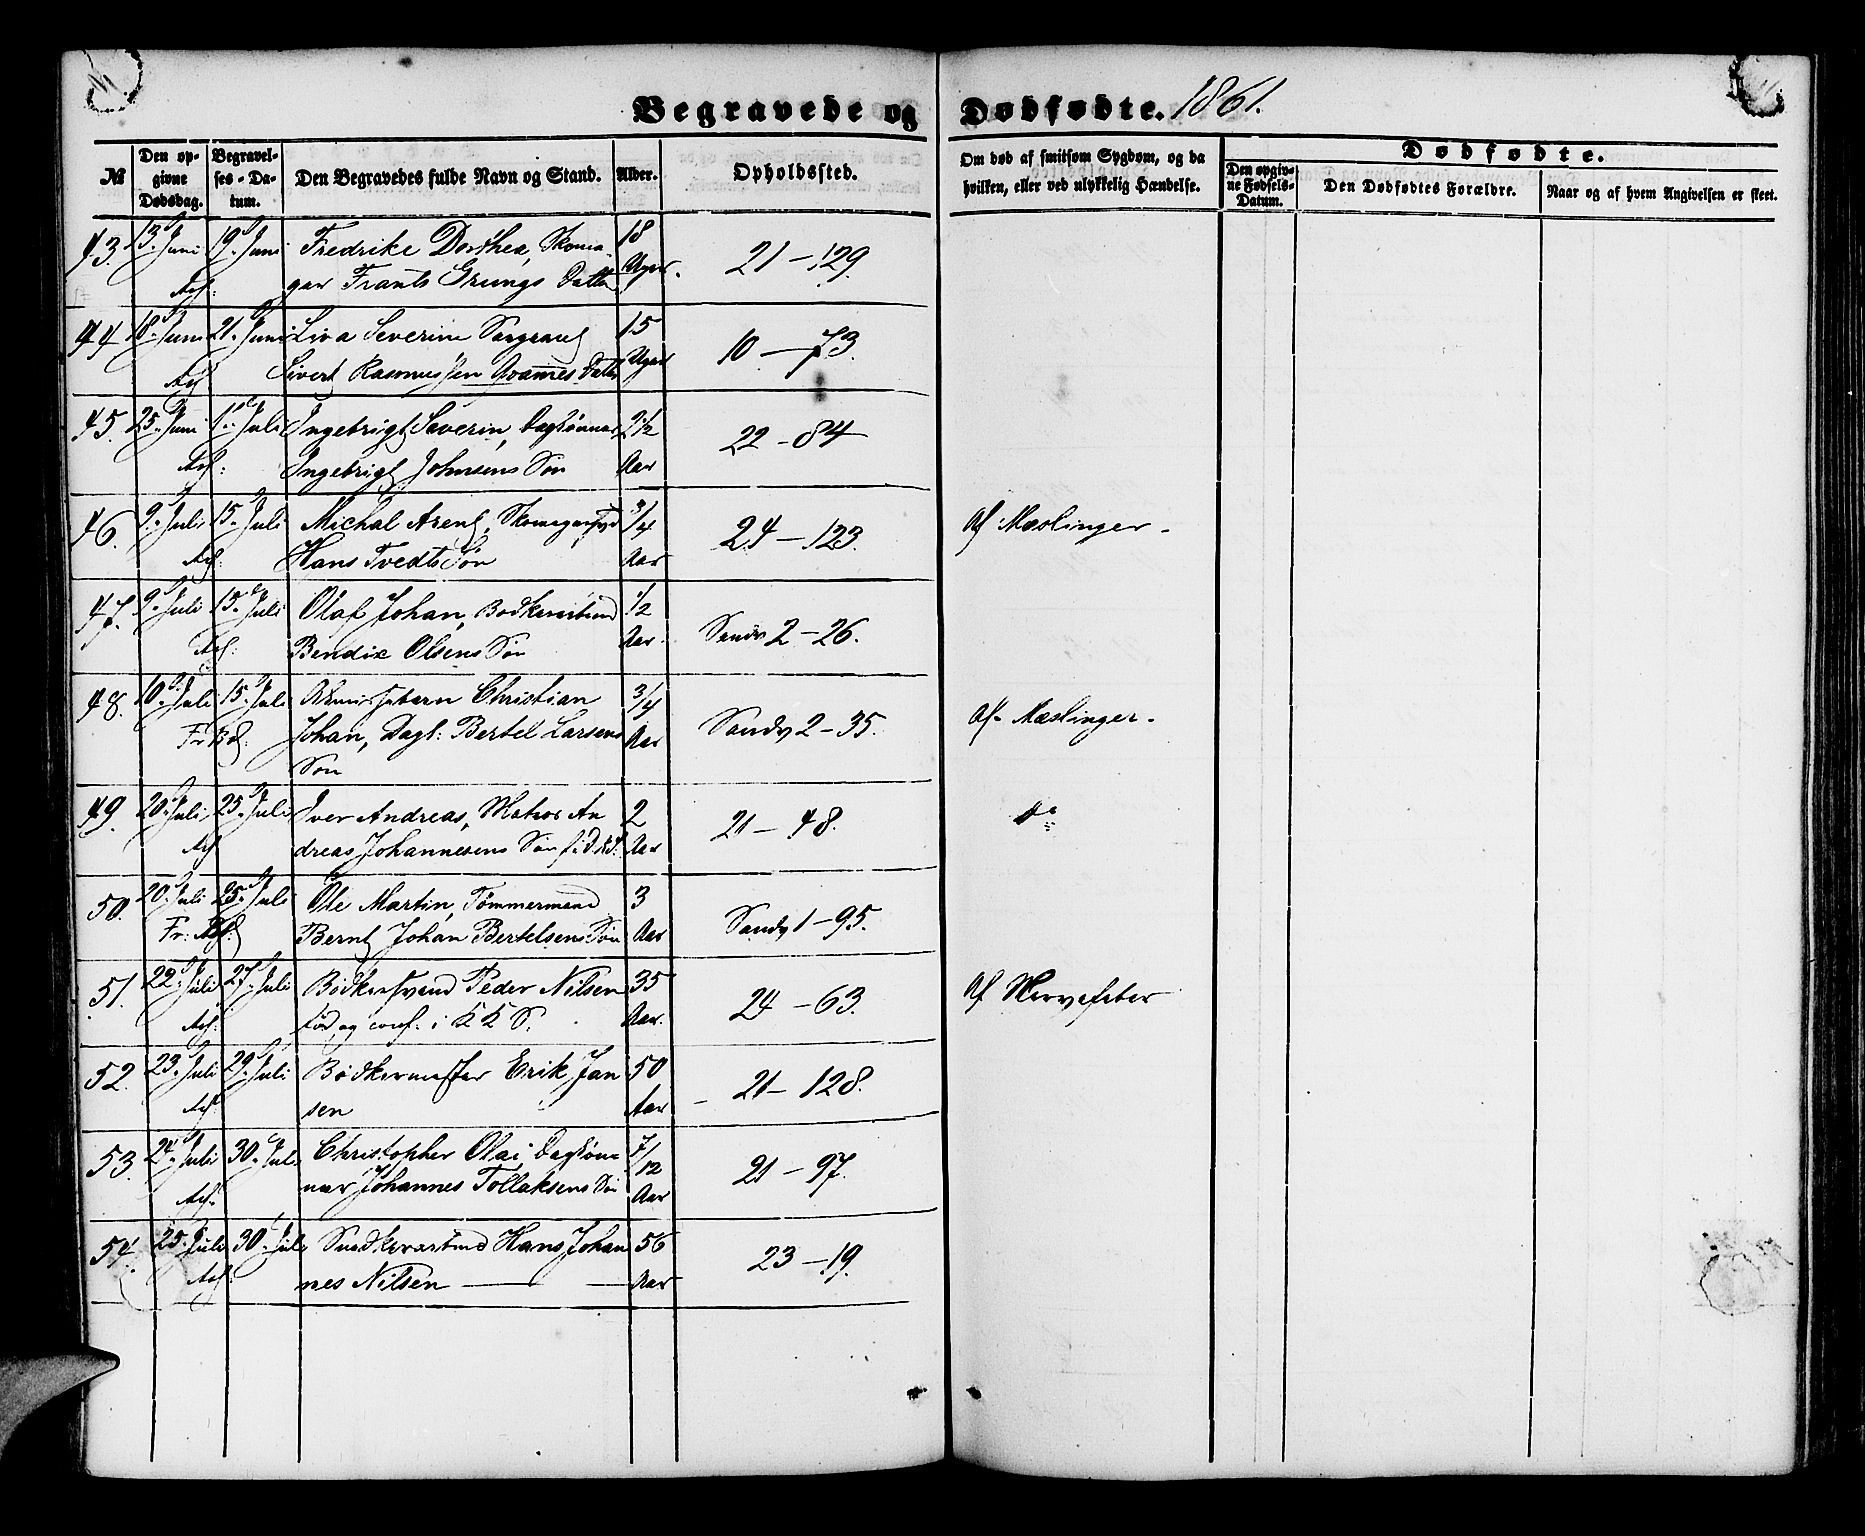 Begravede og Dødfødte. 1861.
№ Den opgivne Dødsdag. Begravelses-Datum. Den Begravedes fulde Navn og Stand. Alder. Opholdssted. Om død af smitsom Sygdom, og da hvilken, eller ved ulykkelig Hændelse. Dødfødte.
Den opgivne Fødsels-Datum. Den Dødfødtes Forældre. Naar og af hvem Angivelsen er skeet.
43. 13. Juni 19. Juni Fredrike Dorthea, Skoma- 18
gar Frants Grungs Datter Uger. 21 – 129.
44 18. Juni 21. Juni Liva Severine 15
Sivert Rasmussen Datter Uger 10 – 73.
45. 25. Juni 1. Juli Ingebrigt Severin, Daglønnar 2 1/2
Ingebrigt Johnsens Søn Aar 22 – 84
46. 9. Juli 15. Juli Michal Arent, 3/4
Hans Tvedts Søn Aar 24 – 123. Af Mæslinger –
47. 9. Juli 13. Juli Olaf Johan, Bødkersvend 1/2
Bendix Olsens Søn Aar. Sandv 2 – 26.
48. 10. Juli 15. Juli Christian 3/4
Johan, Dagl: Bertel Larsens Aar Sandv 2 – 35. Af Mæslinger –
Søn
49. 20. Juli 25. Juli Iver Andreas, Matros An 2
dreas Johannesens Søn Aar 21 – 48. do
50. 20. Juli 25. Juli Ole Martin, Tømmermand 3
Bernt Johan Bertelsens Søn Aar Sandv 1 – 95.
51. 22. Juli 27. Juli Bødkersvend Peder Nilsen 35
fød og conf. i K K S. Aar. 24 – 63. Af Nervefeber
52. 23. Juli 29. Juli Bødkermester Erik Jan 50
sen Aar 21 – 128.
53. 24. Juli 30. Juli Christopher Olai Dagløn- 7/12
nar Johannes Tollaksens Søn Aar 21 – 97.
54. 25. Juli 30. Juli Snedkersvend Hans Johan 56
nes Nilsen Aar 23 – 19.